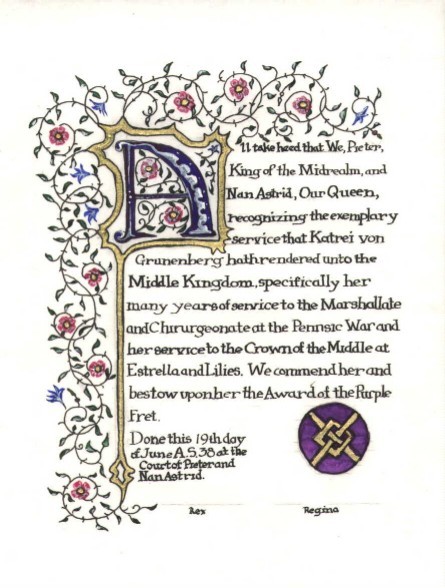 All take heed that We, Pieter,
King of the Midrealm, and
Nan Astrid, Our Queen,
recognizing the exemplary
service that Katrei von
Grunenberg hath rendered unto the
Middle Kingdom, specifically her
many years of service to the Marshallate
and Chirurgeonate at the Pennsic War and
her service to the Crown of the Middle at
Estrella and Lilies. We commend her and
bestow upon her the Award of the Purple
Fret.
Done this 19th day
of June A.S. 38 at the
Court of Pieter and
Nan Astrid.
Rex Regina